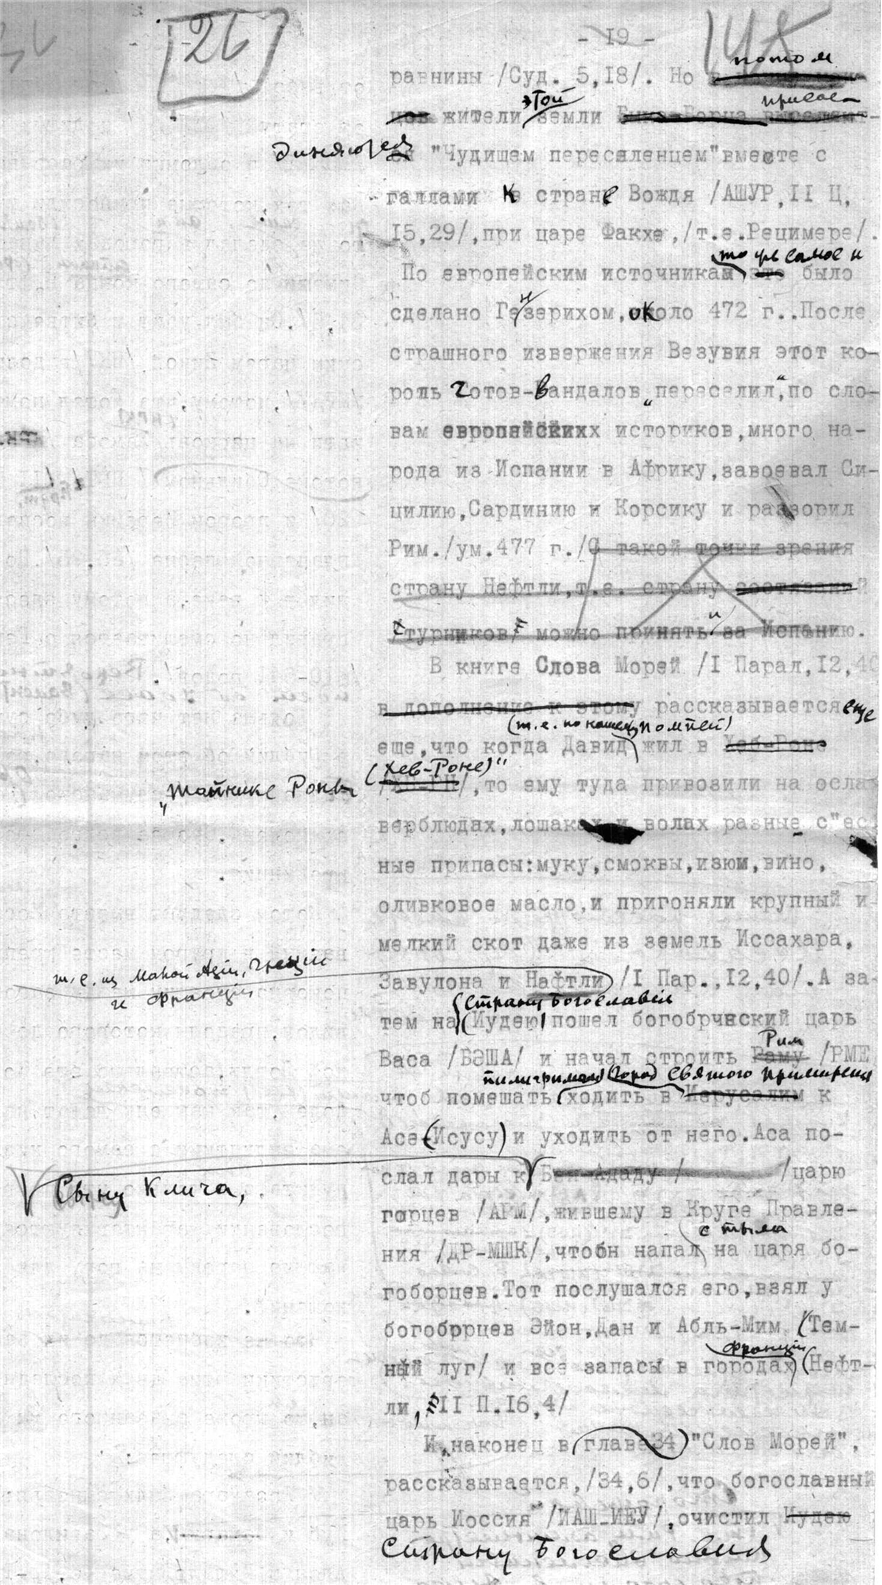 26
- 19 -
145
равнины /Суд. 5,18/. Но
потом
жители этой земли
присое-
диняются
"Чудищем переселенцем"вместе с
галлами к стране Вождя /АШУР,II Ц,
15,29/,при царе Факхе,/т.е.Рецимере/.
то же самое и
По европейским источникам это было
сделано Гензерихом,около 472 г..После
страшного извержения Везувия этот ко-
роль готов-вандалов "переселил",по сло-
вам европейскихх историков,много на-
рода из Испании в Африку,завоевал Си-
цилию,Сардинию и Корсику и разворил
Рим./ум.477 г./С такой точки зрения
страну Нефтли,т.е. страну состязаний
/турников/ можно принять и за Испанию.
В книге Слова Морей /I Парал,12,40
в дополнение к этому рассказывается еще
(т.е. по нашему Помпеи)
еще,что когда Давид жил в Хеб-Роне
"Тайнике Роны (Хев-Роне)"
,то ему туда привозили на осла
верблюдах,лошаках и волах разные с"ес
ные припасы:муку,смоквы,изюм,вино,
оливковое масло,и пригоняли крупный и
мелкий скот даже из земель Иссахара,
т.е. из Малой Азии, Греции
и Франции
Завулона и Нафтли /I Пар.,12,40/.А за-
Страну Богославия
тем на (Иудею) пошел богобрческий царь
Рим
Васа /БЭША/ и начал строить Раму /РМЕ
пилигримам город святого примирения
чтоб помешать ходить в Иерусалим к
Асе-(Исусу) и уходить от него.Аса по-
слал дары к Бен-Ададу / /царю
Сыну Клича,
горцев /АРМ/,жившему в Круге Правле-
с тыла
ния /ДР-МШК/,чтобн напал на царя бо-
гоборцев.Тот послушался его,взял у
богоборцев Эйон,Дан и Абль-Мим (Тем-
Франции
ный луг/ и все запасы в городах (Нефт-
ли, II П.16,4/
И,наконец в главе 34 "Слов Морей",
рассказывается,/34,6/,что богославный
царь Иоссия /ИАШ-ИЕУ/,очистил Иудею
Страну Богославия